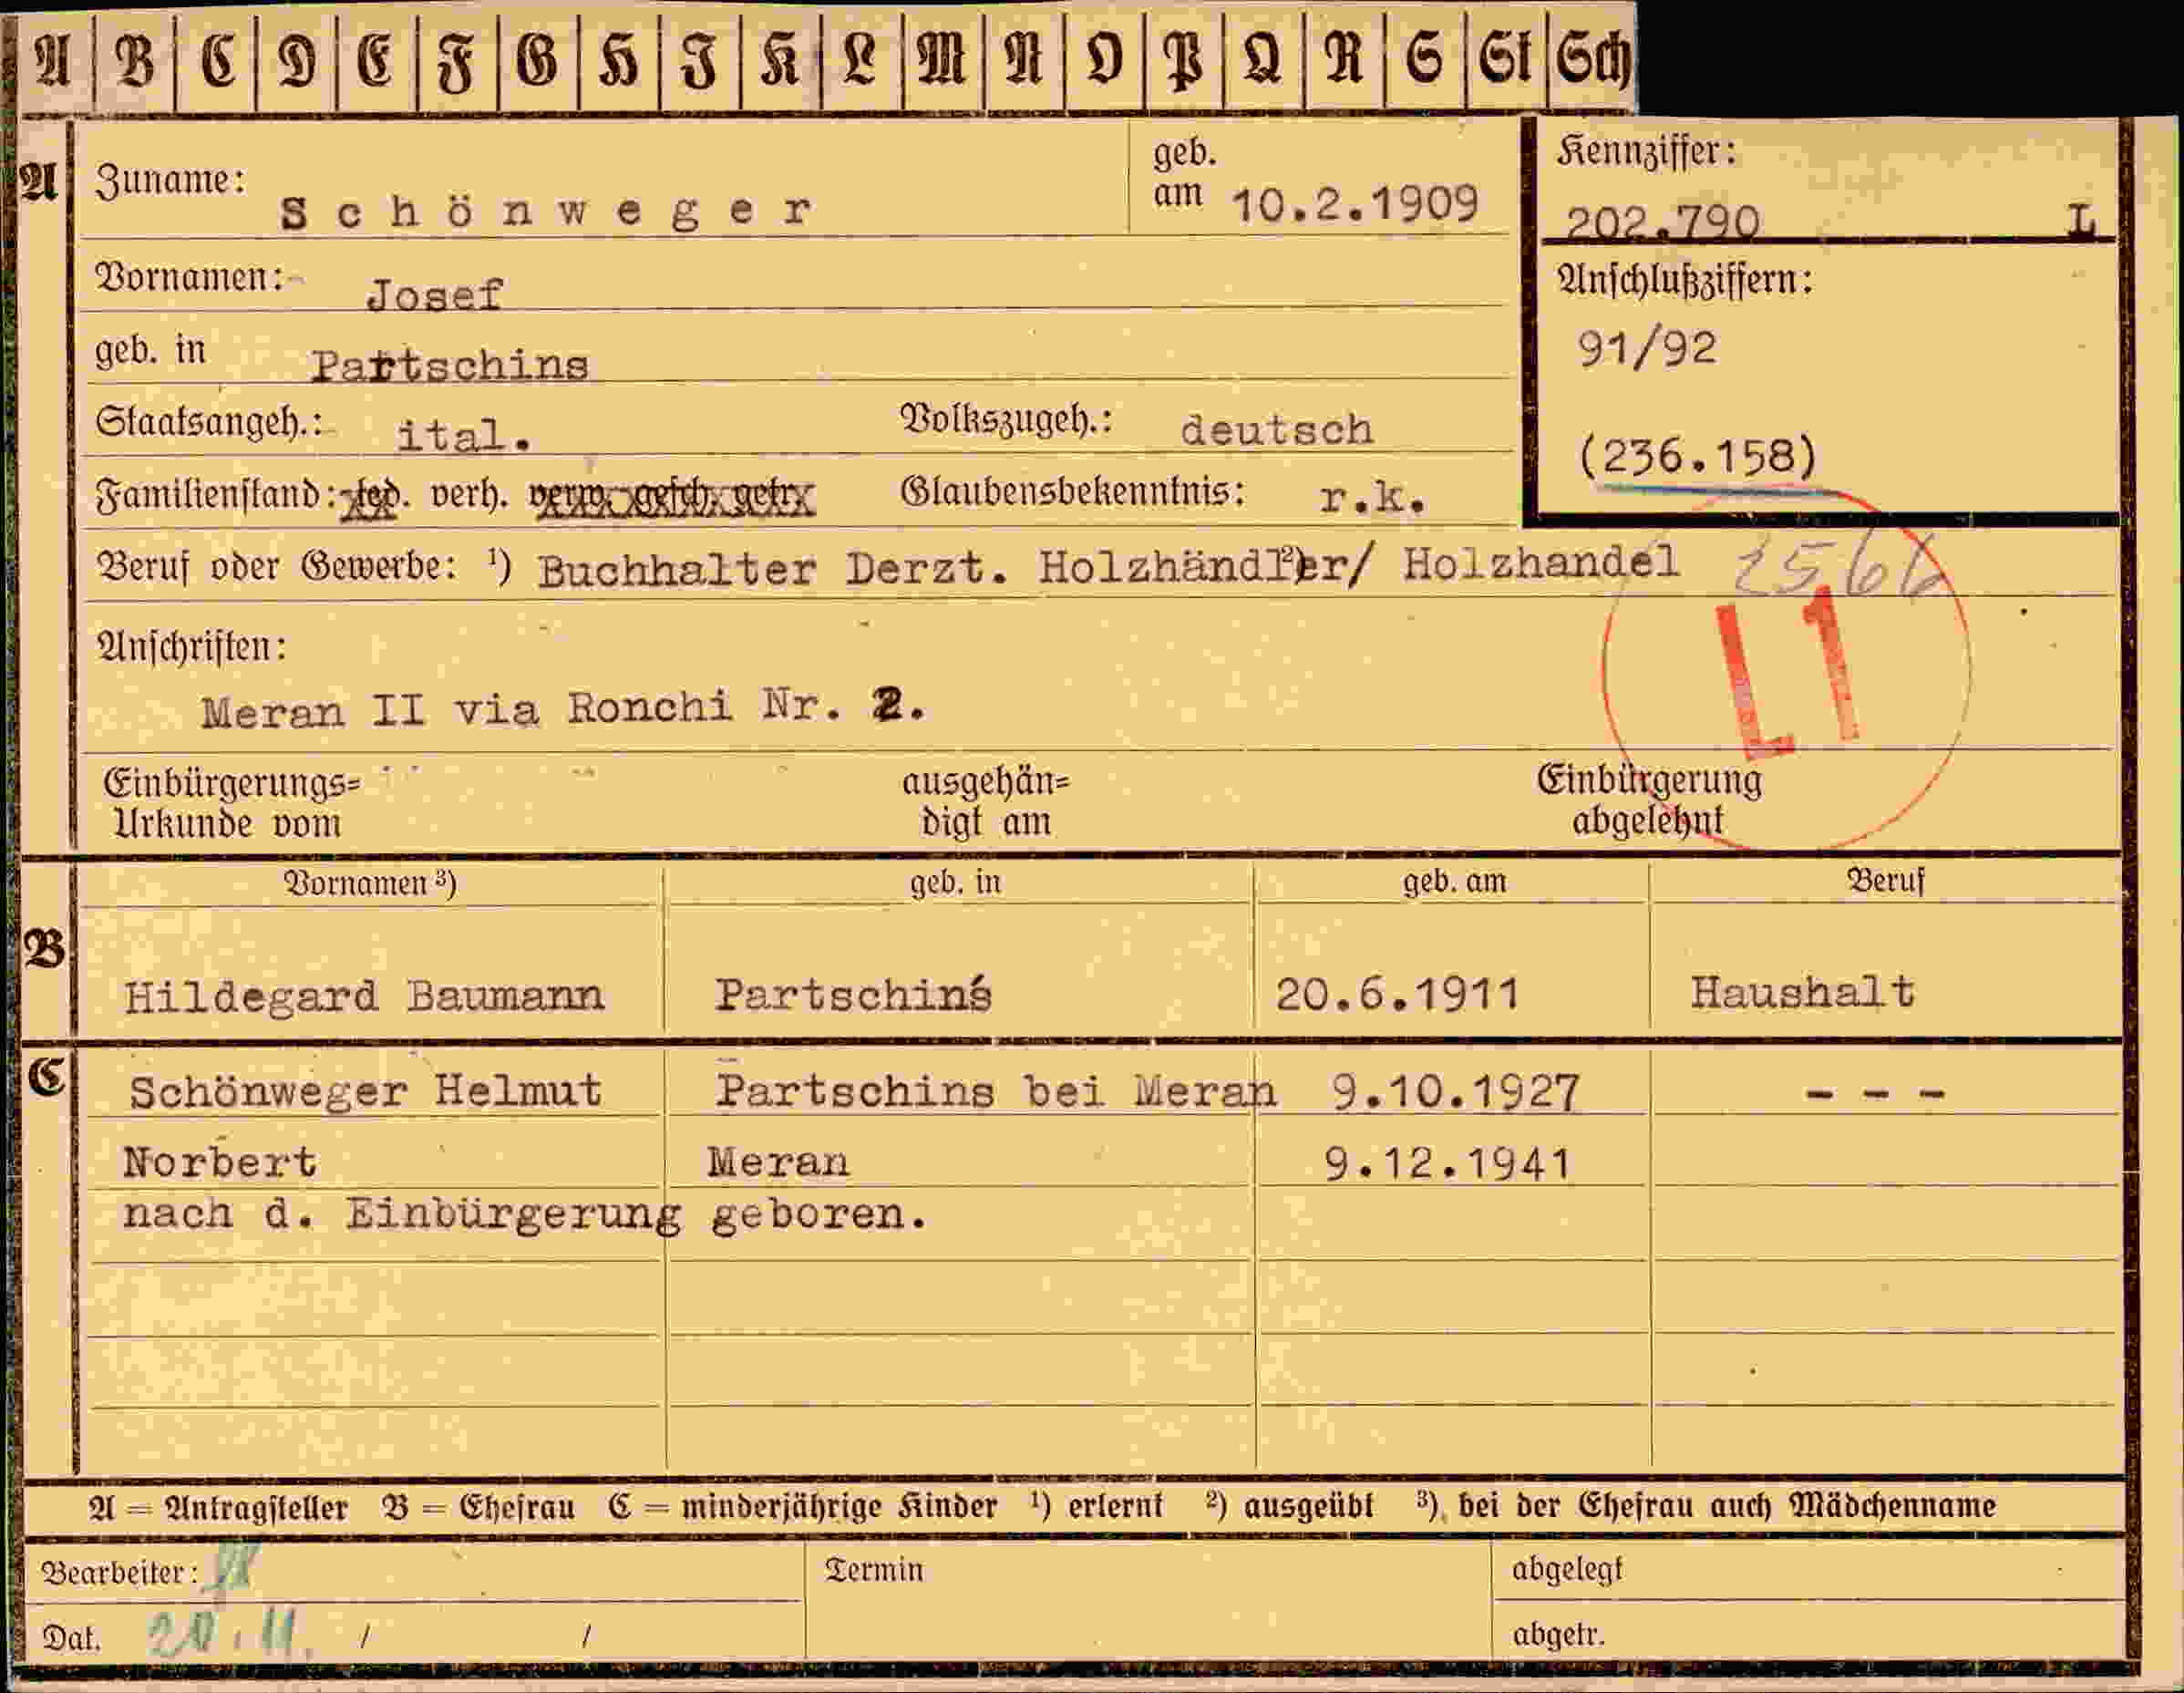 A B C D E F G H I K L M N O P Q R S St Sch
A
Zuname: Schönweger
geb. am 10.2.1909
Kennziffer:
202.790 L
Vornamen: Josef
Anschlußziffern:
geb. in Partschins
91/92
Staatsangeh.: ital. Volkszugeh.: deutsch
(236.158)
Familienstand: led. verh. verw. gesch. getr. Glaubensbekenntnis: r.k.
Beruf oder Gewerbe: ¹) Buchhalter Derzt. Holzhändler/ ²) Holzhandel
L1
Anschriften:
Meran II via Ronchi Nr. 2.
Einbürgerungs= ausgehän= Einbürgerung
Urkunde vom digt am abgelehnt
Vornamen ³) geb. in geb. am Beruf
B
Hildegard Baumann Partschins 20.6.1911 Haushalt
C
Schönweger Helmut Partschins bei Meran 9.10.1927 - - -
Norbert Meran 9.12.1941
nach d. Einbürgerung geboren.
A = Antragsteller B = Ehefrau C = minderjährige Kinder ¹) erlernt ²) ausgeübt ³) bei der Ehefrau auch Mädchenname
Bearbeiter: Termin abgelegt
Dat. 20.11. / / abgetr.